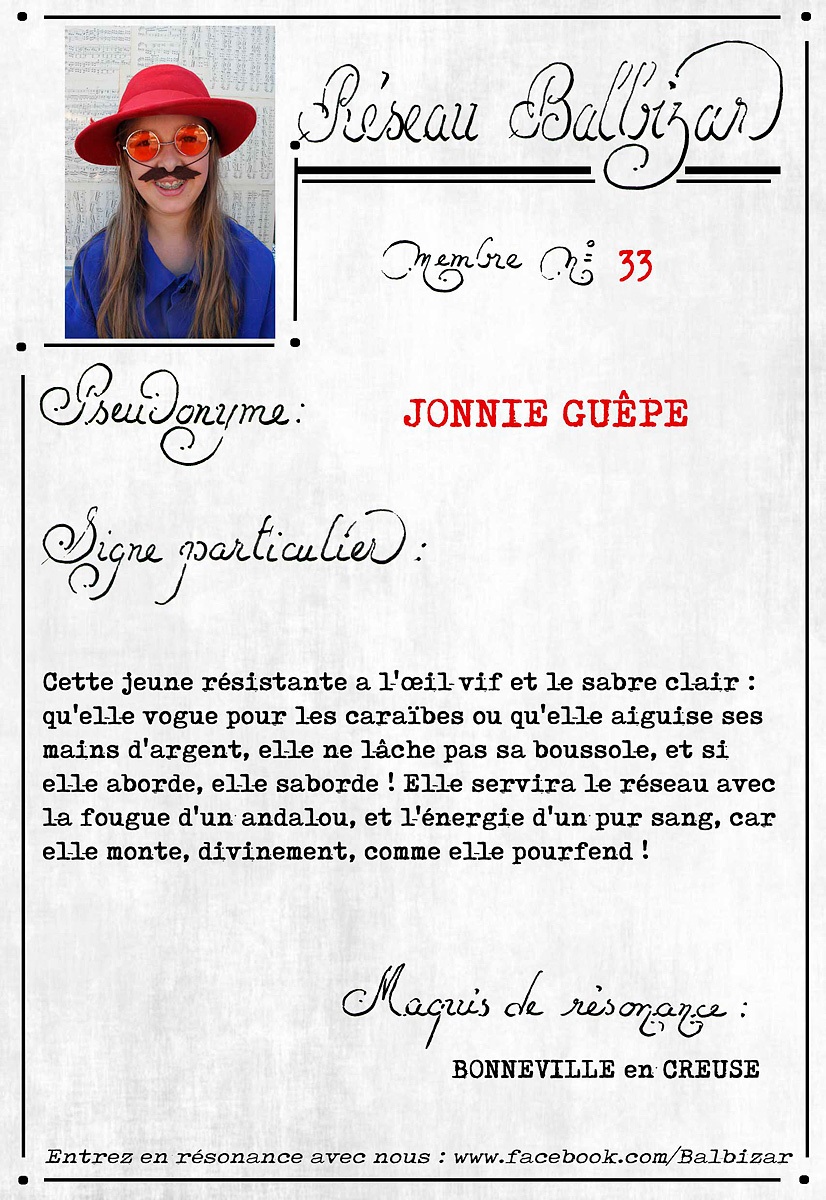 Réseau Balbizar
Membre N° 33
Pseudonyme : JONNIE GUÊPE
Signe particulier :
Cette jeune résistante a l'œil vif et le sabre clair :
qu'elle vogue pour les caraïbes ou qu'elle aiguise ses
mains d'argent, elle ne lâche pas sa boussole, et si
elle aborde, elle saborde ! Elle servira le réseau avec
la fougue d'un andalou, et l'énergie d'un pur sang, car
elle monte, divinement, comme elle pourfend !
Maquis de résonance :
BONNEVILLE en CREUSE
Entrez en résonance avec nous : www.facebook.com/Balbizar